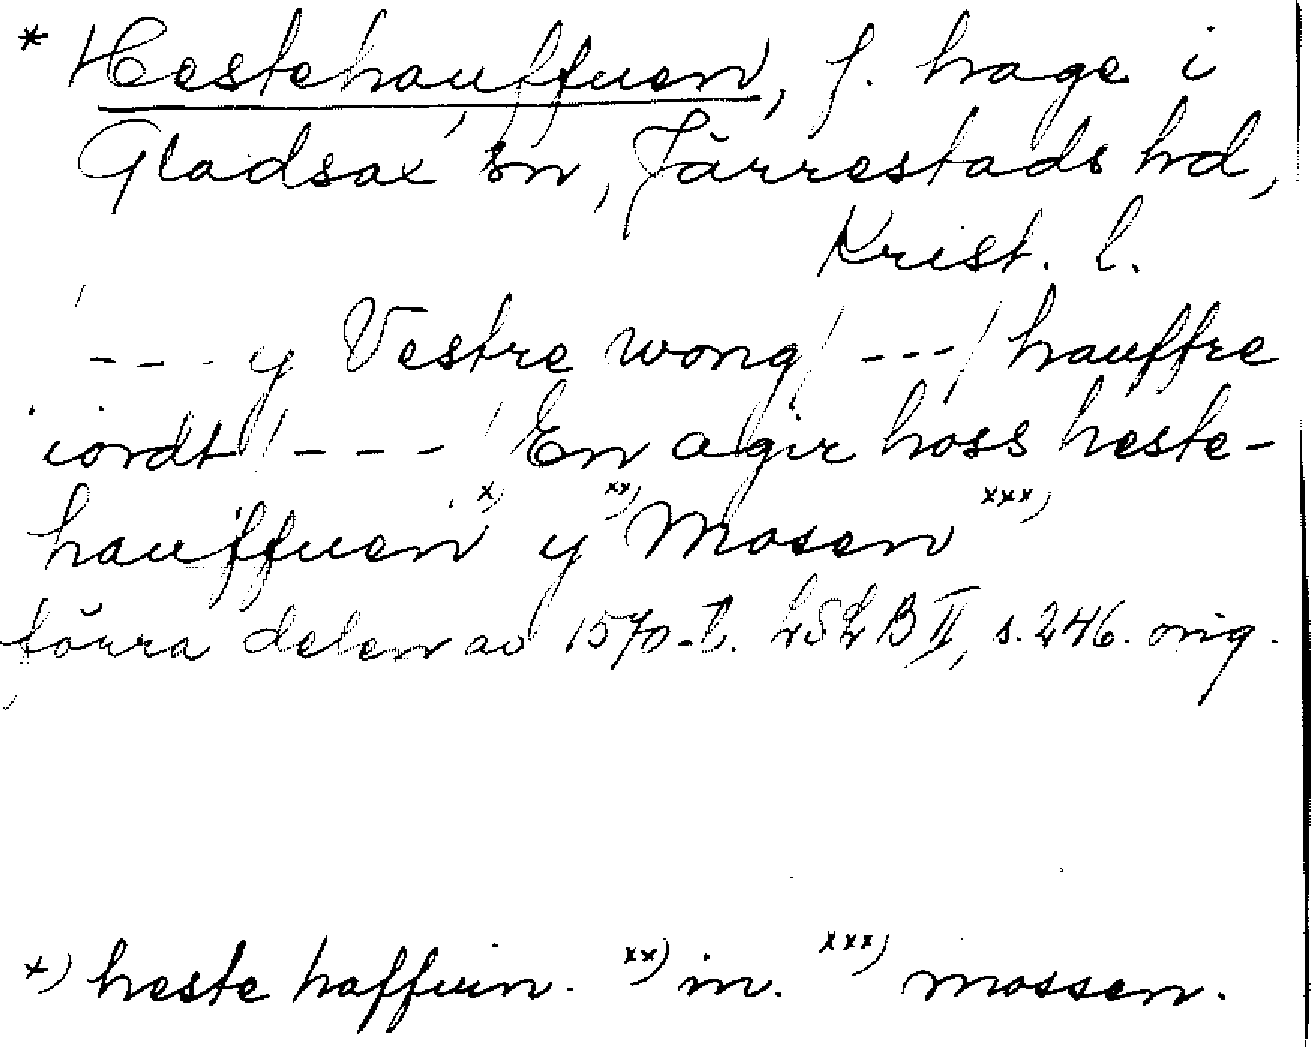 * Hestehauffuen, f. hage i
Gladsax sn, Järrestads hd,
Krist. l.
--- y Vestre wong / --- / hauffre
iordt / --- / En agir hoss heste-
hauffuen x) y xx) Mosen xxx)
förra delen av 1570-t. LSLB II, s. 246. orig.
x) heste haffuin. xx) in. xxx) mossen.